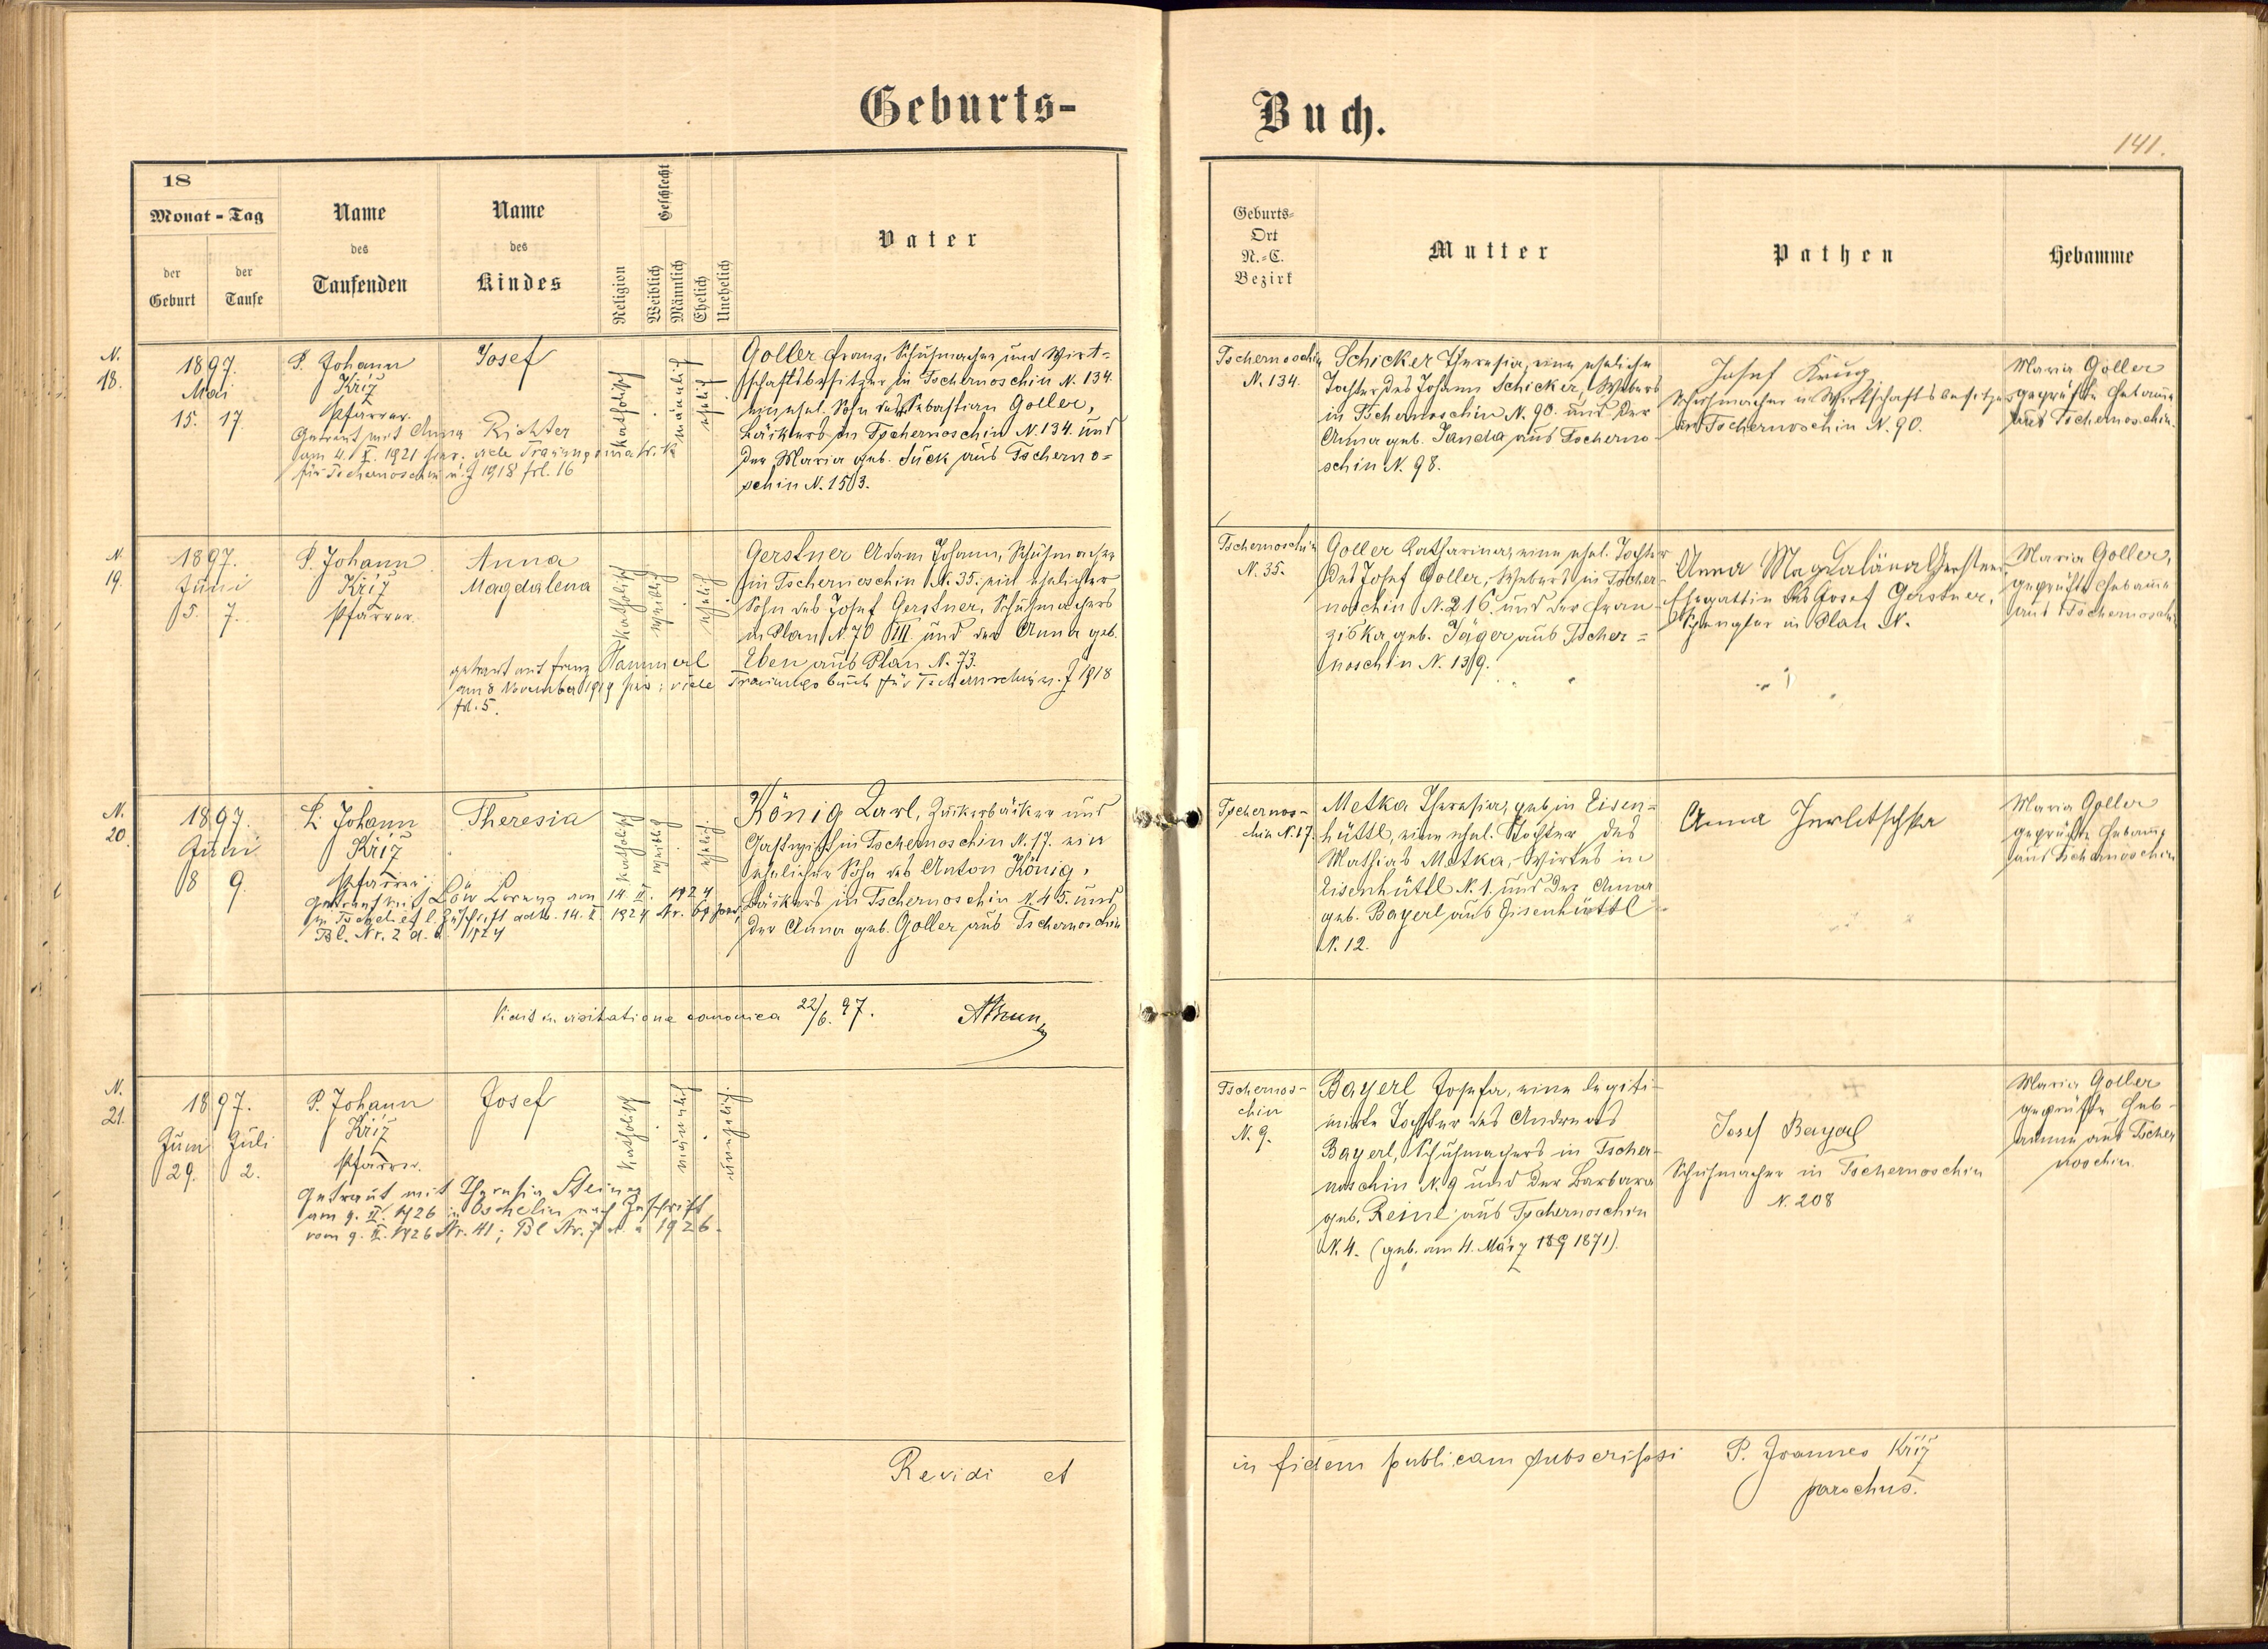 Geburts-
Buch.
141.
18
Monat - Tag
der Geburt
der Taufe
Name des Taufenden
Name des Kindes
Religion
Geschlecht
Weiblich
Männlich
Ehelich
Unehelich
Vater
Geburts-
Ort
N.-C.
Bezirk
Mutter
Pathen
Hebamme
N. 18.
1897.
Mai
15. 17.
P. Johann
Kříž
Pfarrer.
Josef
katholisch
männlich
ehelich
Getraut mit Anna Richter
am 4. X. 1921 hier. vide Trauungsmatrik
für Tschernoschin v. J 1918 fol. 16
Goller Franz, Schuhmacher und Wirt-
schaftsbesitzer in Tschernoschin N. 134.
ein ehel. Sohn des Sebastian Goller,
Bäckers in Tschernoschin N. 134. und
der Maria geb. Suck aus Tscherno-
schin N. 153.
Tschernoschin
N. 134.
Schicker Theresia, eine eheliche
Tochter des Johann Schicker, Webers
in Tschernoschin N. 90. und der
Anna geb. Janda aus Tscherno-
schin N. 98.
Josef Krug
Schuhmacher u. Wirtschaftsbesitzer
in Tschernoschin N. 90.
Maria Goller
geprüfte Hebamme
aus Tschernoschin.
N. 19.
1897.
Juni
5. 7.
P. Johann
Kříž
Pfarrer.
Anna
Magdalena
katholisch
weiblich
ehelich
getraut mit Franz Hammerl
am 8 November 1919 hier; vide Trauungsbuch für Tschernoschin v. J 1918
fol. 5.
Gerstner Adam Johann, Schuhmacher
in Tschernoschin N. 35. ein ehelicher
Sohn des Josef Gerstner, Schuhmachers
in Plan N. 70 III. und der Anna geb.
Eben aus Plan N. 73.
Tschernoschin
N. 35.
Goller Katharina, eine ehel. Tochter
des Josef Goller, Webers in Tscher-
noschin N. 216. und der Fran-
ziska geb. Jäger aus Tscher-
noschin N. 139.
Anna Magdaläna Gerstner
Ehegattin des Josef Gerstner,
Spengler in Plan N.
Maria Goller,
geprüfte Hebamme
aus Tschernoschin
N. 20.
1897.
Juni
8 9.
P. Johann
Kříž
Pfarrer
Theresia
katholisch
weiblich
ehelich.
Getraut mit Löw Lorenz am 14. II. 1924
in Zuschrift ddto. 14. II 1924 Nr. 68
Bl. Nr. 2 a. d. 1924
König Karl, Zuckerbäcker und
Gastwirth in Tschernoschin N. 17. ein
ehelicher Sohn des Anton König,
Bäckers in Tschernoschin N. 45. und
der Anna geb. Goller aus Tschernoschin
Tschernos-
chin N. 17.
Metka Theresia, geb. in Eisen-
hüttl, eine ehel. Tochter des
Mathias Metka, Wirtes in
Eisenhüttl N. 1. und der Anna
geb. Bayerl aus Eisenhüttl
N. 12.
Anna Jerletschka
Maria Goller
geprüfte Hebamme
aus Tschernoschin
Vidit in visitatione canonica 22/6. 97.
N. 21.
1897.
Juni Juli
29. 2.
P. Johann
Kříž
Pfarrer.
Josef
katholisch
männlich
unehelich.
Getraut mit Theresia Steiner
am 9. II. 1926 in Oschelin nach Zuschrift
vom 9. II. 1926 Nr. 41; Bl Nr. 7 a. a 1926.
Tschernos-
chin
N. 9.
Bayerl Josefa, eine legiti-
mirte Tochter des Andreas
Bayerl, Schuhmachers in Tscher-
noschin N. 9 und der Barbara
geb. Reinl aus Tschernoschin
N. 4. (geb. am 4. März 189 1871).
Josef Bayerl
Schuhmacher in Tschernoschin
N. 208
Maria Goller
geprüfte Heb-
amme aus Tscher
noschin.
Revidi et in fidem publicam subscripsi P. Joannes Kříž
parochus.